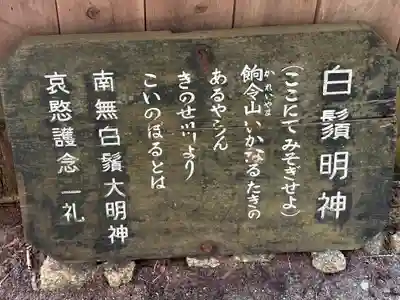 白鬚明神
(ここにてみそぎせよ)
かれいやま
餉令山いかなるたきの
あるやらん
きのせ川より
こいのぼるとは
南無白鬚大明神
哀愍護念 一礼